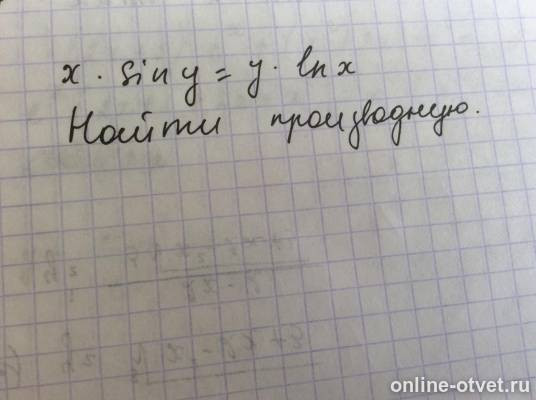 x · sin y = y · ln x
Найти производную.
online-otvet.ru